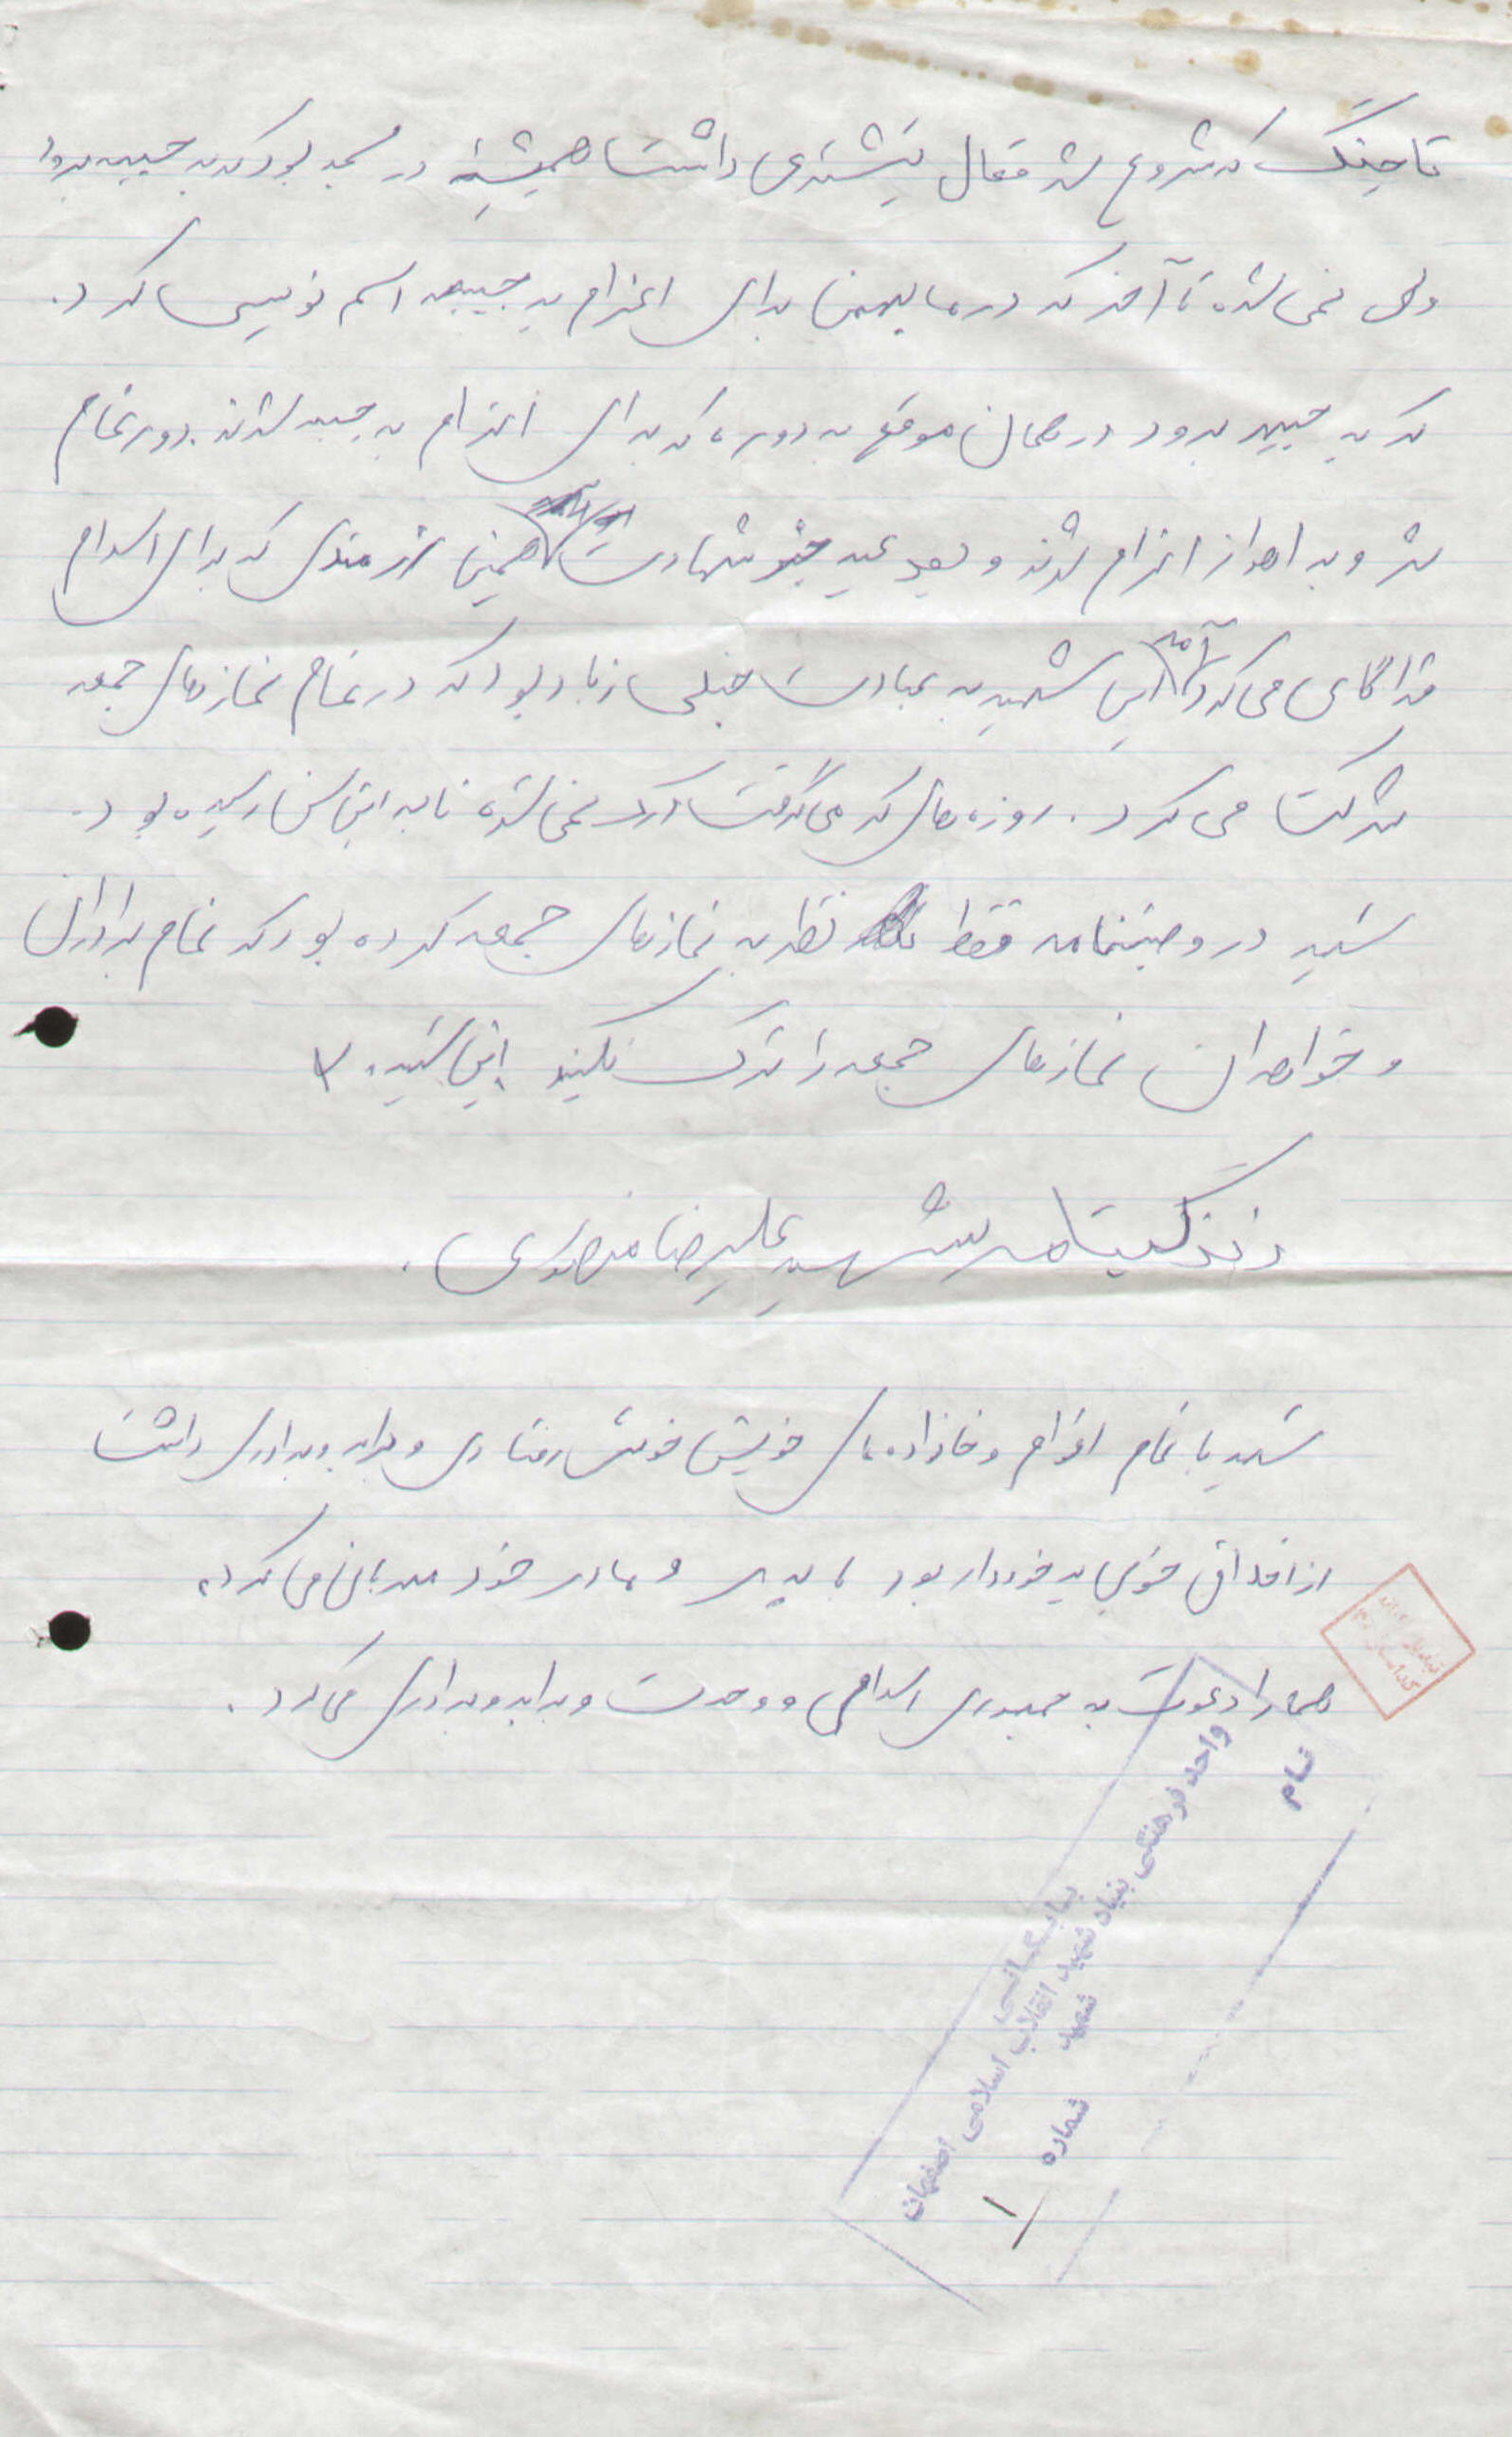 تا جنگ که شروع شد فعال بیشتری داشت همیشه در مسجد بود که به جبهه برود
ولی نمی شده تا آخر که در ما بهمن برای اعزام به جبهه اسم نویسی کرد.
که به جبهه برود در همان موقع به دوره که برای اعزام به جبهه شدند. دوره تمام
شد و به اهواز اعزام شدند و بعد عید شهادت همین رزمندی که برای اسلام
فداکاری می کرد آمد این شهید به عبادت خیلی زیاد بود که در تمام نمازهای جمعه
شرکت می کرد. روزه های که می گرفت ترک نمی شده تا به این سن رسیده بود.
شهید در وصیتنامه فقط نظر به نمازهای جمعه کرده بود که تمام برادران
و خواهران نمازهای جمعه را ترک نکنید این شهید.
زندگینامه شهید علیرضا
شهید با تمام اقوام و خانواده های خویش خوش رفتاری و برابر و برادری داشت
از اخلاق خوبی برخوردار بود با پدر و مادر خود مهربانی می کرد.
همه را دعوت به جمهوری اسلامی و وحدت و برابر و برادری می کرد.
واحد فرهنگی بنیاد شهید انقلاب اسلامی اصفهان
بایگانی شهید
نام
شماره